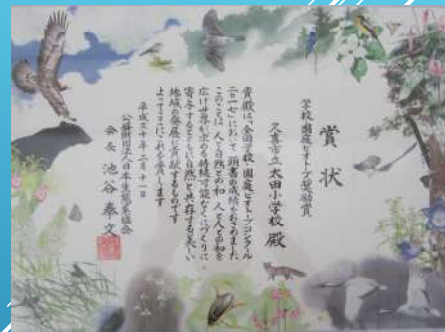 賞状
学校園庭ビオトープ奨励賞
久喜市立太田小学校 殿
貴殿は、全国学校・園庭ビオトープコンクール
二〇一七において頭書の成績をおさめました
このことは 人と自然との和 人と人との和を
広げ世界が求める持続可能なくにづくりに
寄与するとともに自然と共存する美しい
地域の発展に貢献するものです
よってここにこれを賞します
平成三十年二月十一日
公益財団法人日本生態系協会
会長 池谷奉文